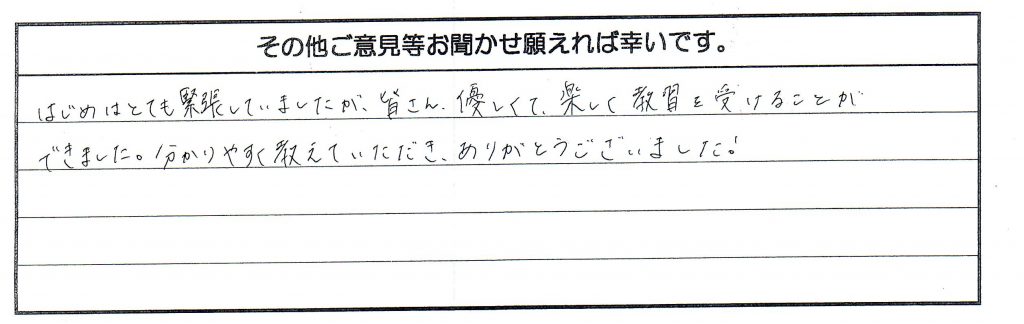 その他ご意見等お聞かせ願えれば幸いです。
はじめはとても緊張していましたが、皆さん、優しくて、楽しく教習を受けることが
できました。分かりやすく教えていただき、ありがとうございました!